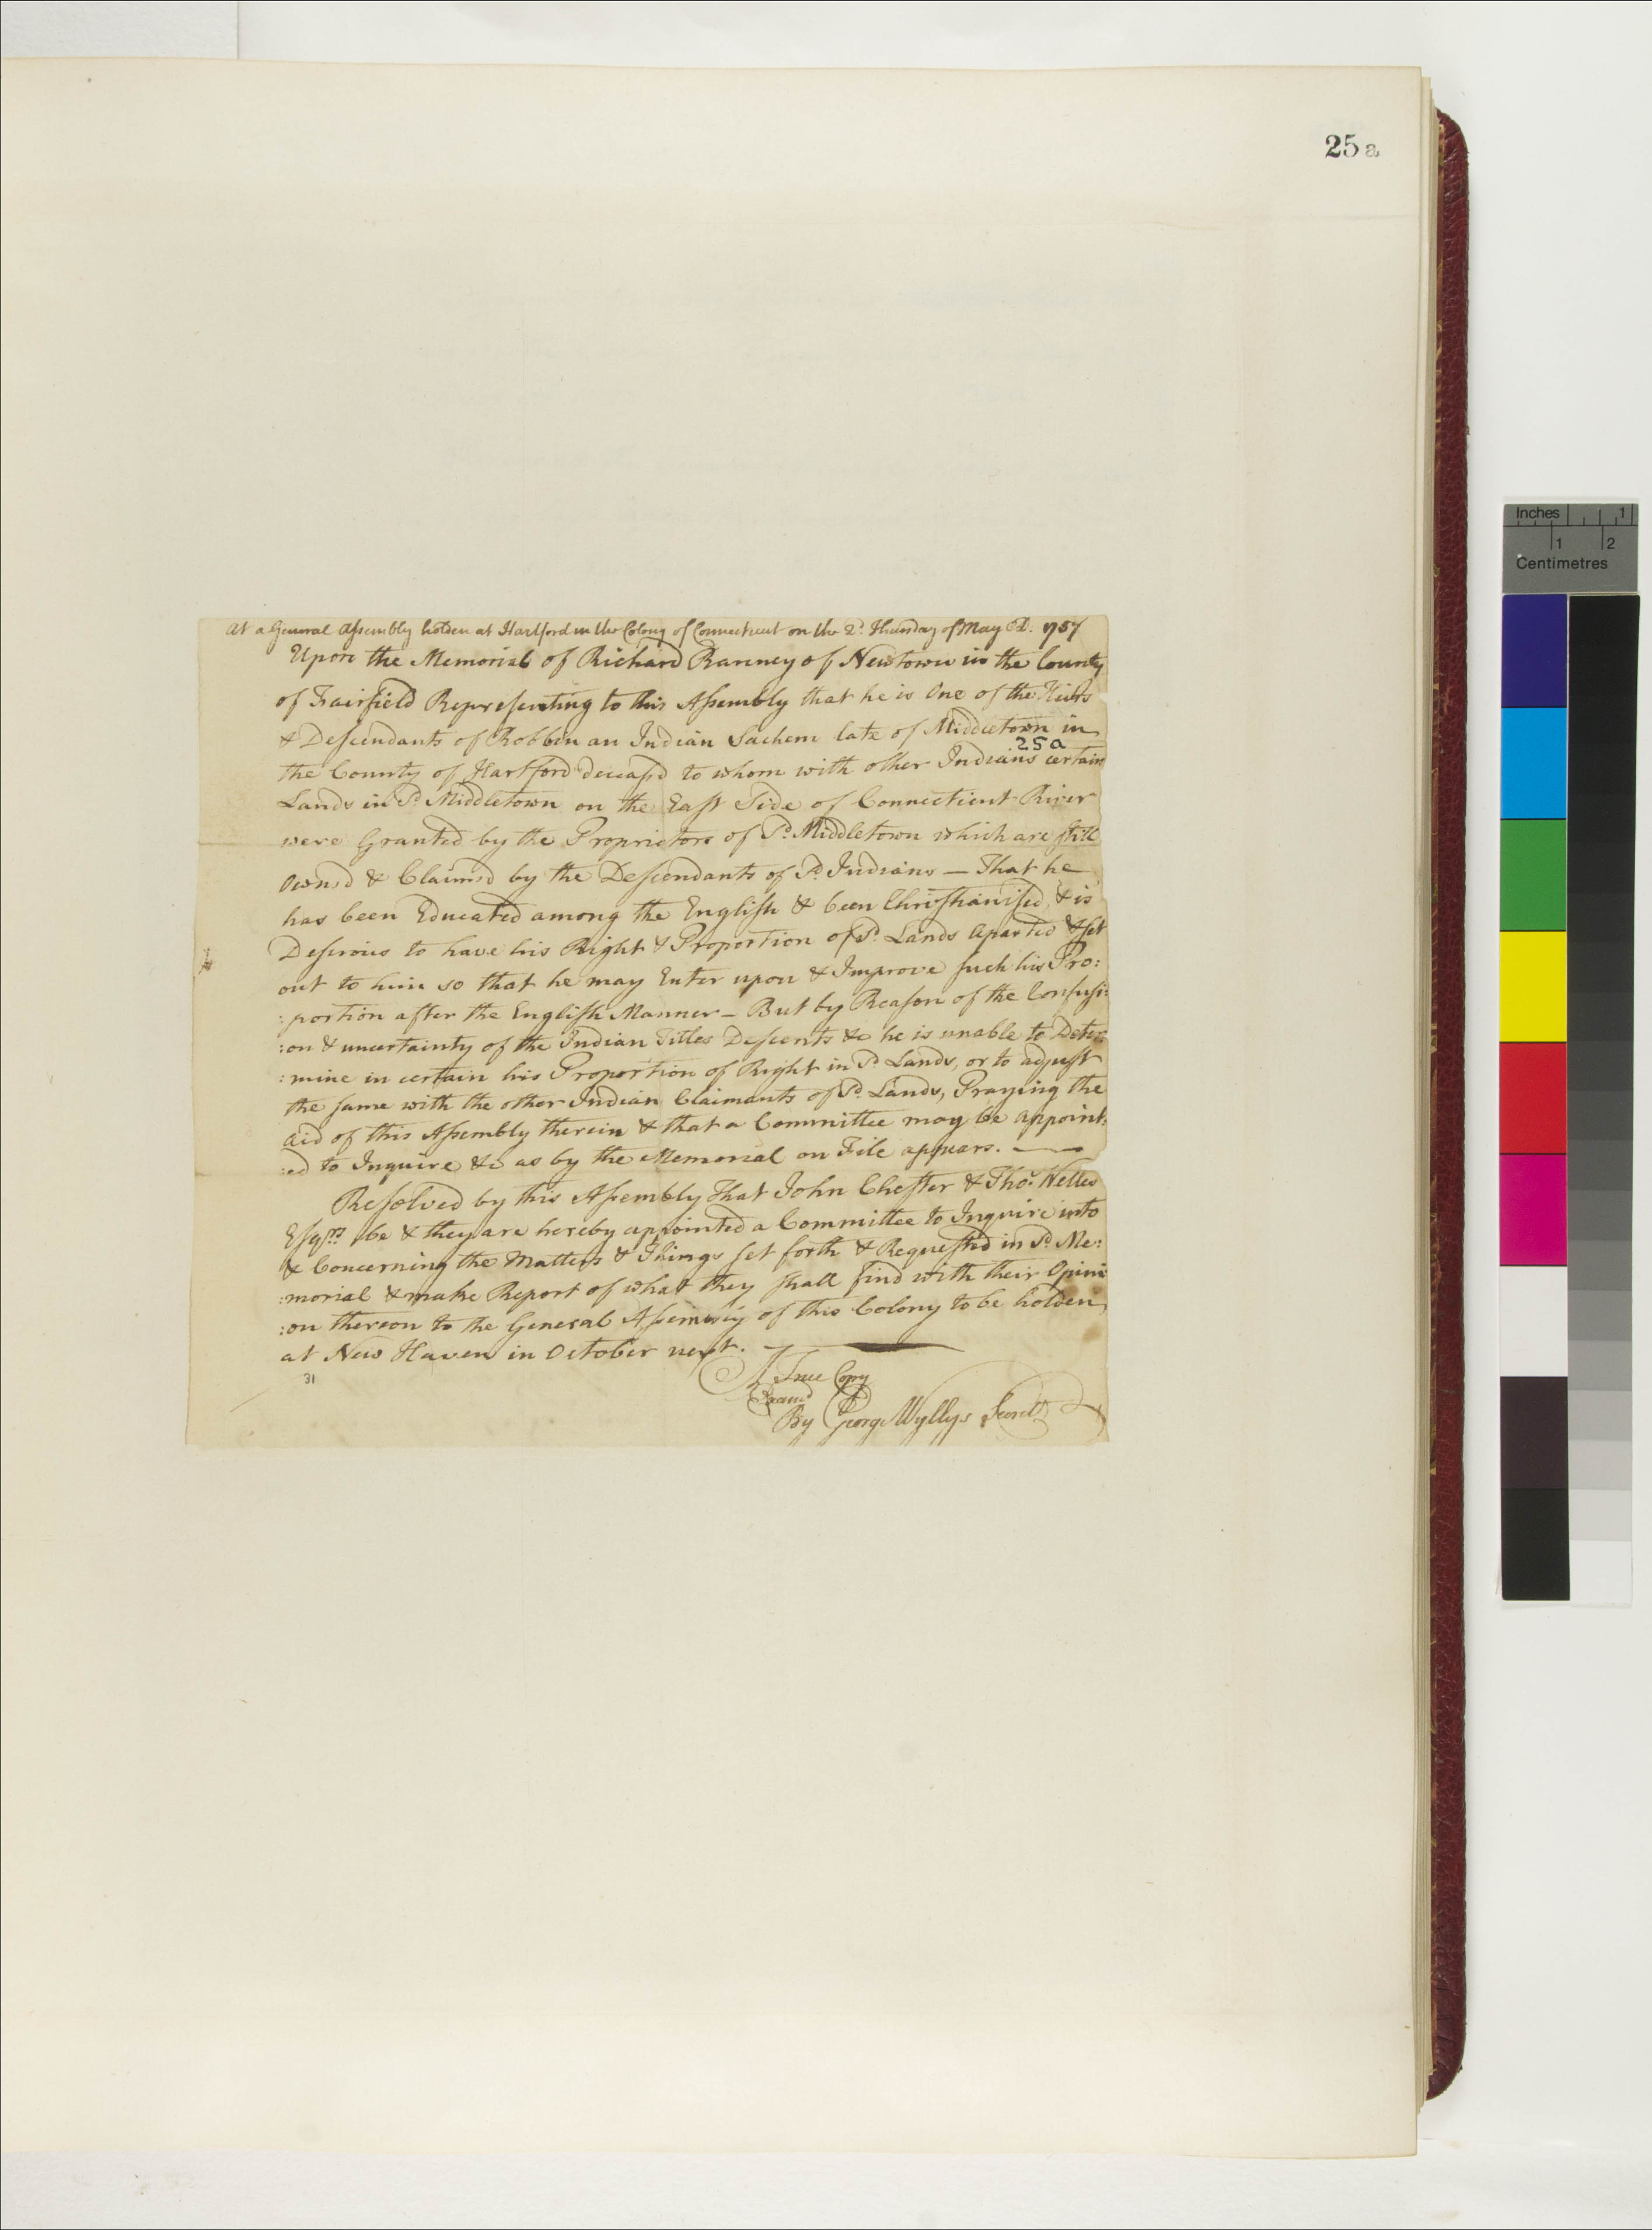 25a
At a General Assembly holden at Hartford in the Colony of Connecticut on the 2d. Thursday of May AD: 1757
Upon the Memorial of Richard Ranney of Newtown in the County
of Fairfield Representing to this Assembly that he is One of the Heirs
& Descendants of Robbin an Indian Sachem late of Middletown in
25a
the County of Hartford deceasd to whom with other Indians certain
Lands in Sd. Middletown on the East Side of Connecticut River
were Granted by the Proprietors of Sd. Middletown which are still
Ownd & Claimd by the Descendants of Sd. Indians — That he
has been Educated among the English & been Christianised, & is
Desirous to have his Right & Proportion of Sd. Lands Aparted & set
out to him so that he may Enter upon & Improve such his Pro:
:portion after the English Manner — But by Reason of the Confusi:
:on & uncertainty of the Indian Titles Descents &c he is unable to Deter:
:mine in certain his Proportion of Right in Sd. Lands, or to adjust
the same with the other Indian Claimants of Sd. Lands, Praying the
Aid of this Assembly therein & that a Committee may be appoint:
:ed to Inquire &c as by the Memorial on File appears. —
Resolved by this Assembly That John Chester & Thos. Welles
Esqrs. be & they are hereby appointed a Committee to Inquire into
& Concerning the Matters & Things set forth & Requested in Sd. Me:
:morial & make Report of what they shall find with their Opini
:on thereon to the General Assembly of this Colony to be holden
at New Haven in October next. —
31
A True Copy
Examd
By George Wyllys Secrety
Inches 1
1 2
Centimetres